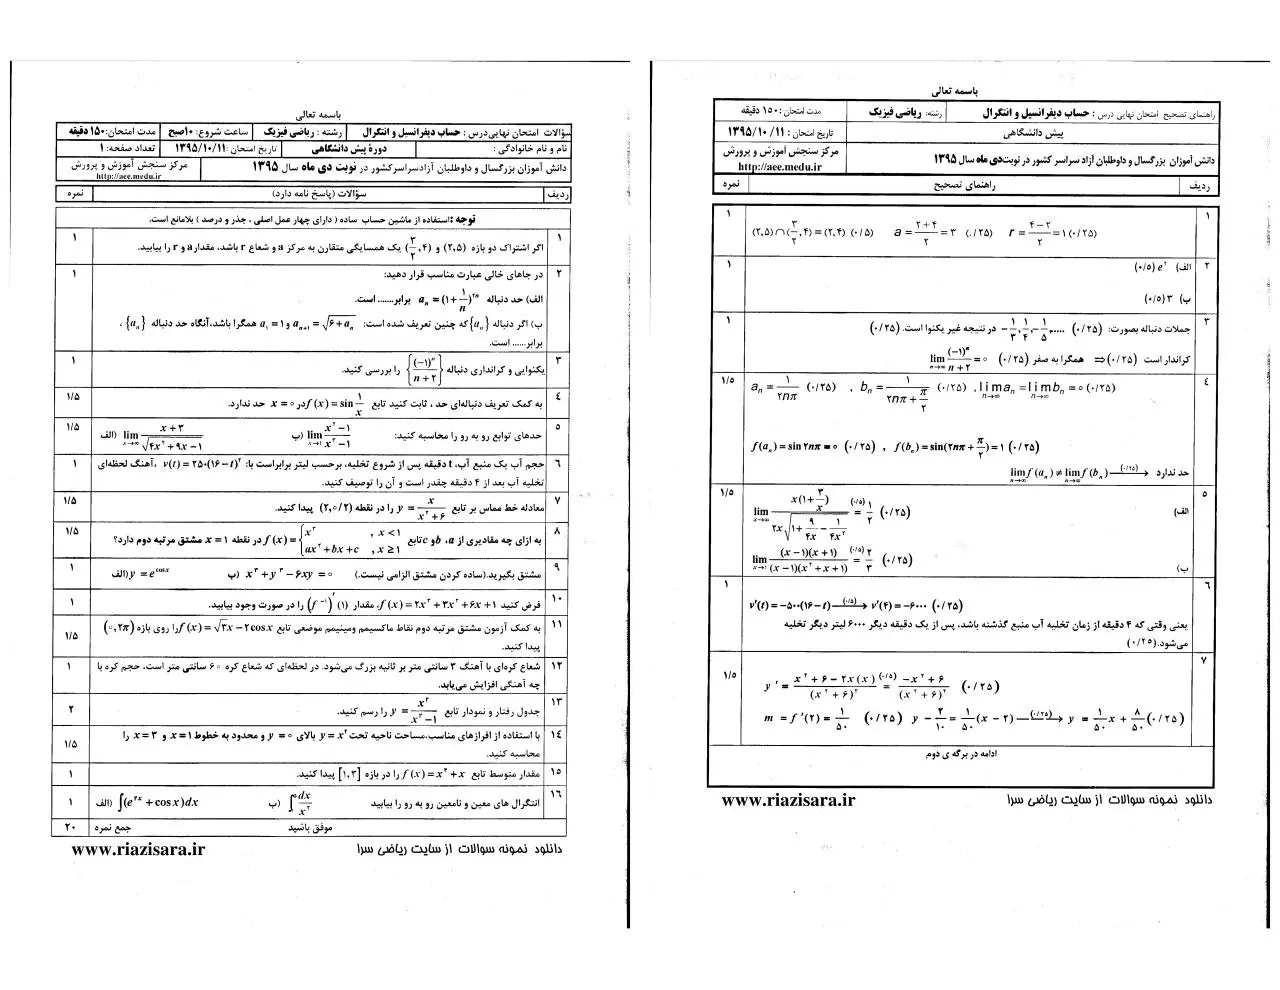 باسمه تعالی
سؤالات امتحان نهایی درس : حساب دیفرانسیل و انتگرال
رشته : ریاضی فیزیک
ساعت شروع: ۱۰صبح
مدت امتحان: ۱۵۰ دقیقه
نام و نام خانوادگی :
دورهٔ پیش دانشگاهی
تاریخ امتحان: ۱۳۹۵/۱۰/۱۱
تعداد صفحه: ۱
دانش آموزان بزرگسال و داوطلبان آزاد سراسر کشور در نوبت دی ماه سال ۱۳۹۵
مرکز سنجش آموزش و پرورش
http://aee.medu.ir
ردیف
سؤالات (پاسخ نامه دارد)
نمره
توجه : استفاده از ماشین حساب ساده ( دارای چهار عمل اصلی ، جذر و درصد ) بلامانع است.
۱ اگر اشتراک دو بازه (۲,۵) و (۳/۲,۴) یک همسایگی متقارن به مرکز a و شعاع r باشد، مقدار a و r را بیابید. ۱
۲ در جاهای خالی عبارت مناسب قرار دهید: ۱
الف) حد دنباله aₙ = (۱+۱/n)^۲ⁿ برابر....... است.
ب) اگر دنباله {aₙ} که چنین تعریف شده است: aₙ₊₁ = √(۶+aₙ) و a₁ = ۱ همگرا باشد، آنگاه حد دنباله {aₙ} ،
برابر...... است.
۳ یکنوایی و کرانداری دنباله {(−۱)ⁿ/(n+۲)} را بررسی کنید. ۱
۴ به کمک تعریف دنباله‌ای حد ، ثابت کنید تابع f(x) = sin ۱/x در x = ۰ حد ندارد. ۱/۵
۵ حدهای توابع رو به رو را محاسبه کنید: ب) lim x→۱ (x²−۱)/(x³−۱) الف) lim x→∞ (x+۳)/√(۴x²+۹x−۱) ۱/۵
۶ حجم آب یک منبع آب، t دقیقه پس از شروع تخلیه، برحسب لیتر برابراست با: v(t) = ۲۵۰(۱۶−t)² ، آهنگ لحظه‌ای ۱
تخلیه آب بعد از ۴ دقیقه چقدر است و آن را توصیف کنید.
۷ معادله خط مماس بر تابع y = x/(x²+۶) را در نقطه (۲,۰/۲) پیدا کنید. ۱/۵
۸ به ازای چه مقادیری از a، b و c تابع f(x) = { x³ , x<۱ ; ax²+bx+c , x≥۱ در نقطه x = ۱ مشتق مرتبه دوم دارد؟ ۱/۵
۹ مشتق بگیرید.(ساده کردن مشتق الزامی نیست.) ب) x³+y³−۶xy = ۰ الف) y = e^cosx ۱
۱۰ فرض کنید f(x) = ۲x³+۳x²+۶x+۱، مقدار (f⁻¹)′(۱) را در صورت وجود بیابید. ۱
۱۱ به کمک آزمون مشتق مرتبه دوم نقاط ماکسیمم ومینیمم موضعی تابع f(x) = √۳x−۲cosx را روی بازه (۰,۲π) ۱/۵
پیدا کنید.
۱۲ شعاع کره‌ای با آهنگ ۳ سانتی متر بر ثانیه بزرگ می‌شود. در لحظه‌ای که شعاع کره ۶۰ سانتی متر است، حجم کره با ۱
چه آهنگی افزایش می‌یابد.
۱۳ جدول رفتار و نمودار تابع y = x²/(x²−۱) را رسم کنید. ۲
۱۴ با استفاده از افرازهای مناسب،مساحت ناحیه تحت y = x² بالای y = ۰ و محدود به خطوط x = ۱ و x = ۳ را ۱/۵
محاسبه کنید.
۱۵ مقدار متوسط تابع f(x) = x²+x را در بازه [۱,۳] پیدا کنید. ۱
۱۶ انتگرال های معین و نامعین رو به رو را بیابید ب) ∫dx/x² الف) ∫(e^۲x + cosx)dx ۱
موفق باشید
جمع نمره
۲۰
دانلود نمونه سوالات از سایت ریاضی سرا
www.riazisara.ir
باسمه تعالی
راهنمای تصحیح امتحان نهایی درس : حساب دیفرانسیل و انتگرال
رشته: ریاضی فیزیک
مدت امتحان: ۱۵۰ دقیقه
پیش دانشگاهی
تاریخ امتحان : ۱۳۹۵/۱۰/۱۱
دانش آموزان بزرگسال و داوطلبان آزاد سراسر کشور در نوبت دی ماه سال ۱۳۹۵
مرکز سنجش آموزش و پرورش
http://aee.medu.ir
ردیف
راهنمای تصحیح
نمره
۱ (۲,۵)∩(۳/۲,۴) = (۲,۴) (۰/۵) a = (۲+۴)/۲ = ۳ (۰/۲۵) r = (۴−۲)/۲ = ۱ (۰/۲۵) ۱
۲ الف) e² (۰/۵) ۱
ب) ۳ (۰/۵)
۳ جملات دنباله بصورت: −۱/۳, ۱/۴, −۱/۵, .... (۰/۲۵) در نتیجه غیر یکنوا است. (۰/۲۵) ۱
کراندار است (۰/۲۵) ⇐ همگرا به صفر (۰/۲۵) lim n→∞ (−۱)ⁿ/(n+۲) = ۰
۴ aₙ = ۱/۲nπ (۰/۲۵) , bₙ = ۱/(۲nπ+π/۲) (۰/۲۵) , lim n→∞ aₙ = lim n→∞ bₙ = ۰ (۰/۲۵) ۱/۵
f(aₙ) = sin ۲nπ = ۰ (۰/۲۵) , f(bₙ) = sin(۲nπ+π/۲) = ۱ (۰/۲۵)
lim n→∞ f(aₙ) ≠ lim n→∞ f(bₙ) —(۰/۲۵)→ حد ندارد
۵ الف) lim x→∞ x(۱+۳/x)/(۲x√(۱+۹/۴x−۱/۴x²)) =(۰/۵) ۱/۲ (۰/۲۵) ۱/۵
ب) lim x→۱ (x−۱)(x+۱)/((x−۱)(x²+x+۱)) =(۰/۵) ۲/۳ (۰/۲۵)
۶ v′(t) = −۵۰۰(۱۶−t) —(۰/۵)→ v′(۴) = −۶۰۰۰ (۰/۲۵) ۱
یعنی وقتی که ۴ دقیقه از زمان تخلیه آب منبع گذشته باشد، پس از یک دقیقه دیگر ۶۰۰۰ لیتر دیگر تخلیه
می‌شود. (۰/۲۵)
۷ y′ = (x²+۶−۲x(x))/(x²+۶)² =(۰/۲۵) (−x²+۶)/(x²+۶)² (۰/۲۵) ۱/۵
m = f′(۲) = ۱/۵۰ (۰/۲۵) y − ۲/۱۰ = ۱/۵۰(x−۲) —(۰/۲۵)→ y = ۱/۵۰x + ۸/۵۰ (۰/۲۵)
ادامه در برگه ی دوم
دانلود نمونه سوالات از سایت ریاضی سرا
www.riazisara.ir